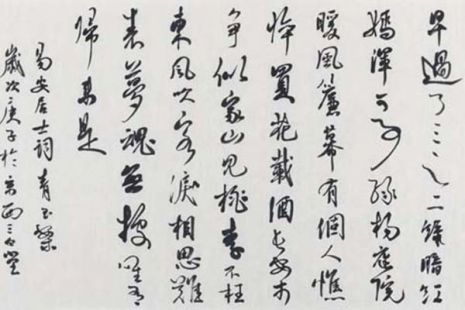 早過了三之二綠暗紅
嫣渾可事綠楊庭院
暖風簾幕有個人憔
悴買花載酒長安市
爭似家山見桃李不枉
東風吹客淚相思難
表夢魂無據唯有
歸來是
易安居士詞青玉案
歲次庚子於京西三堂